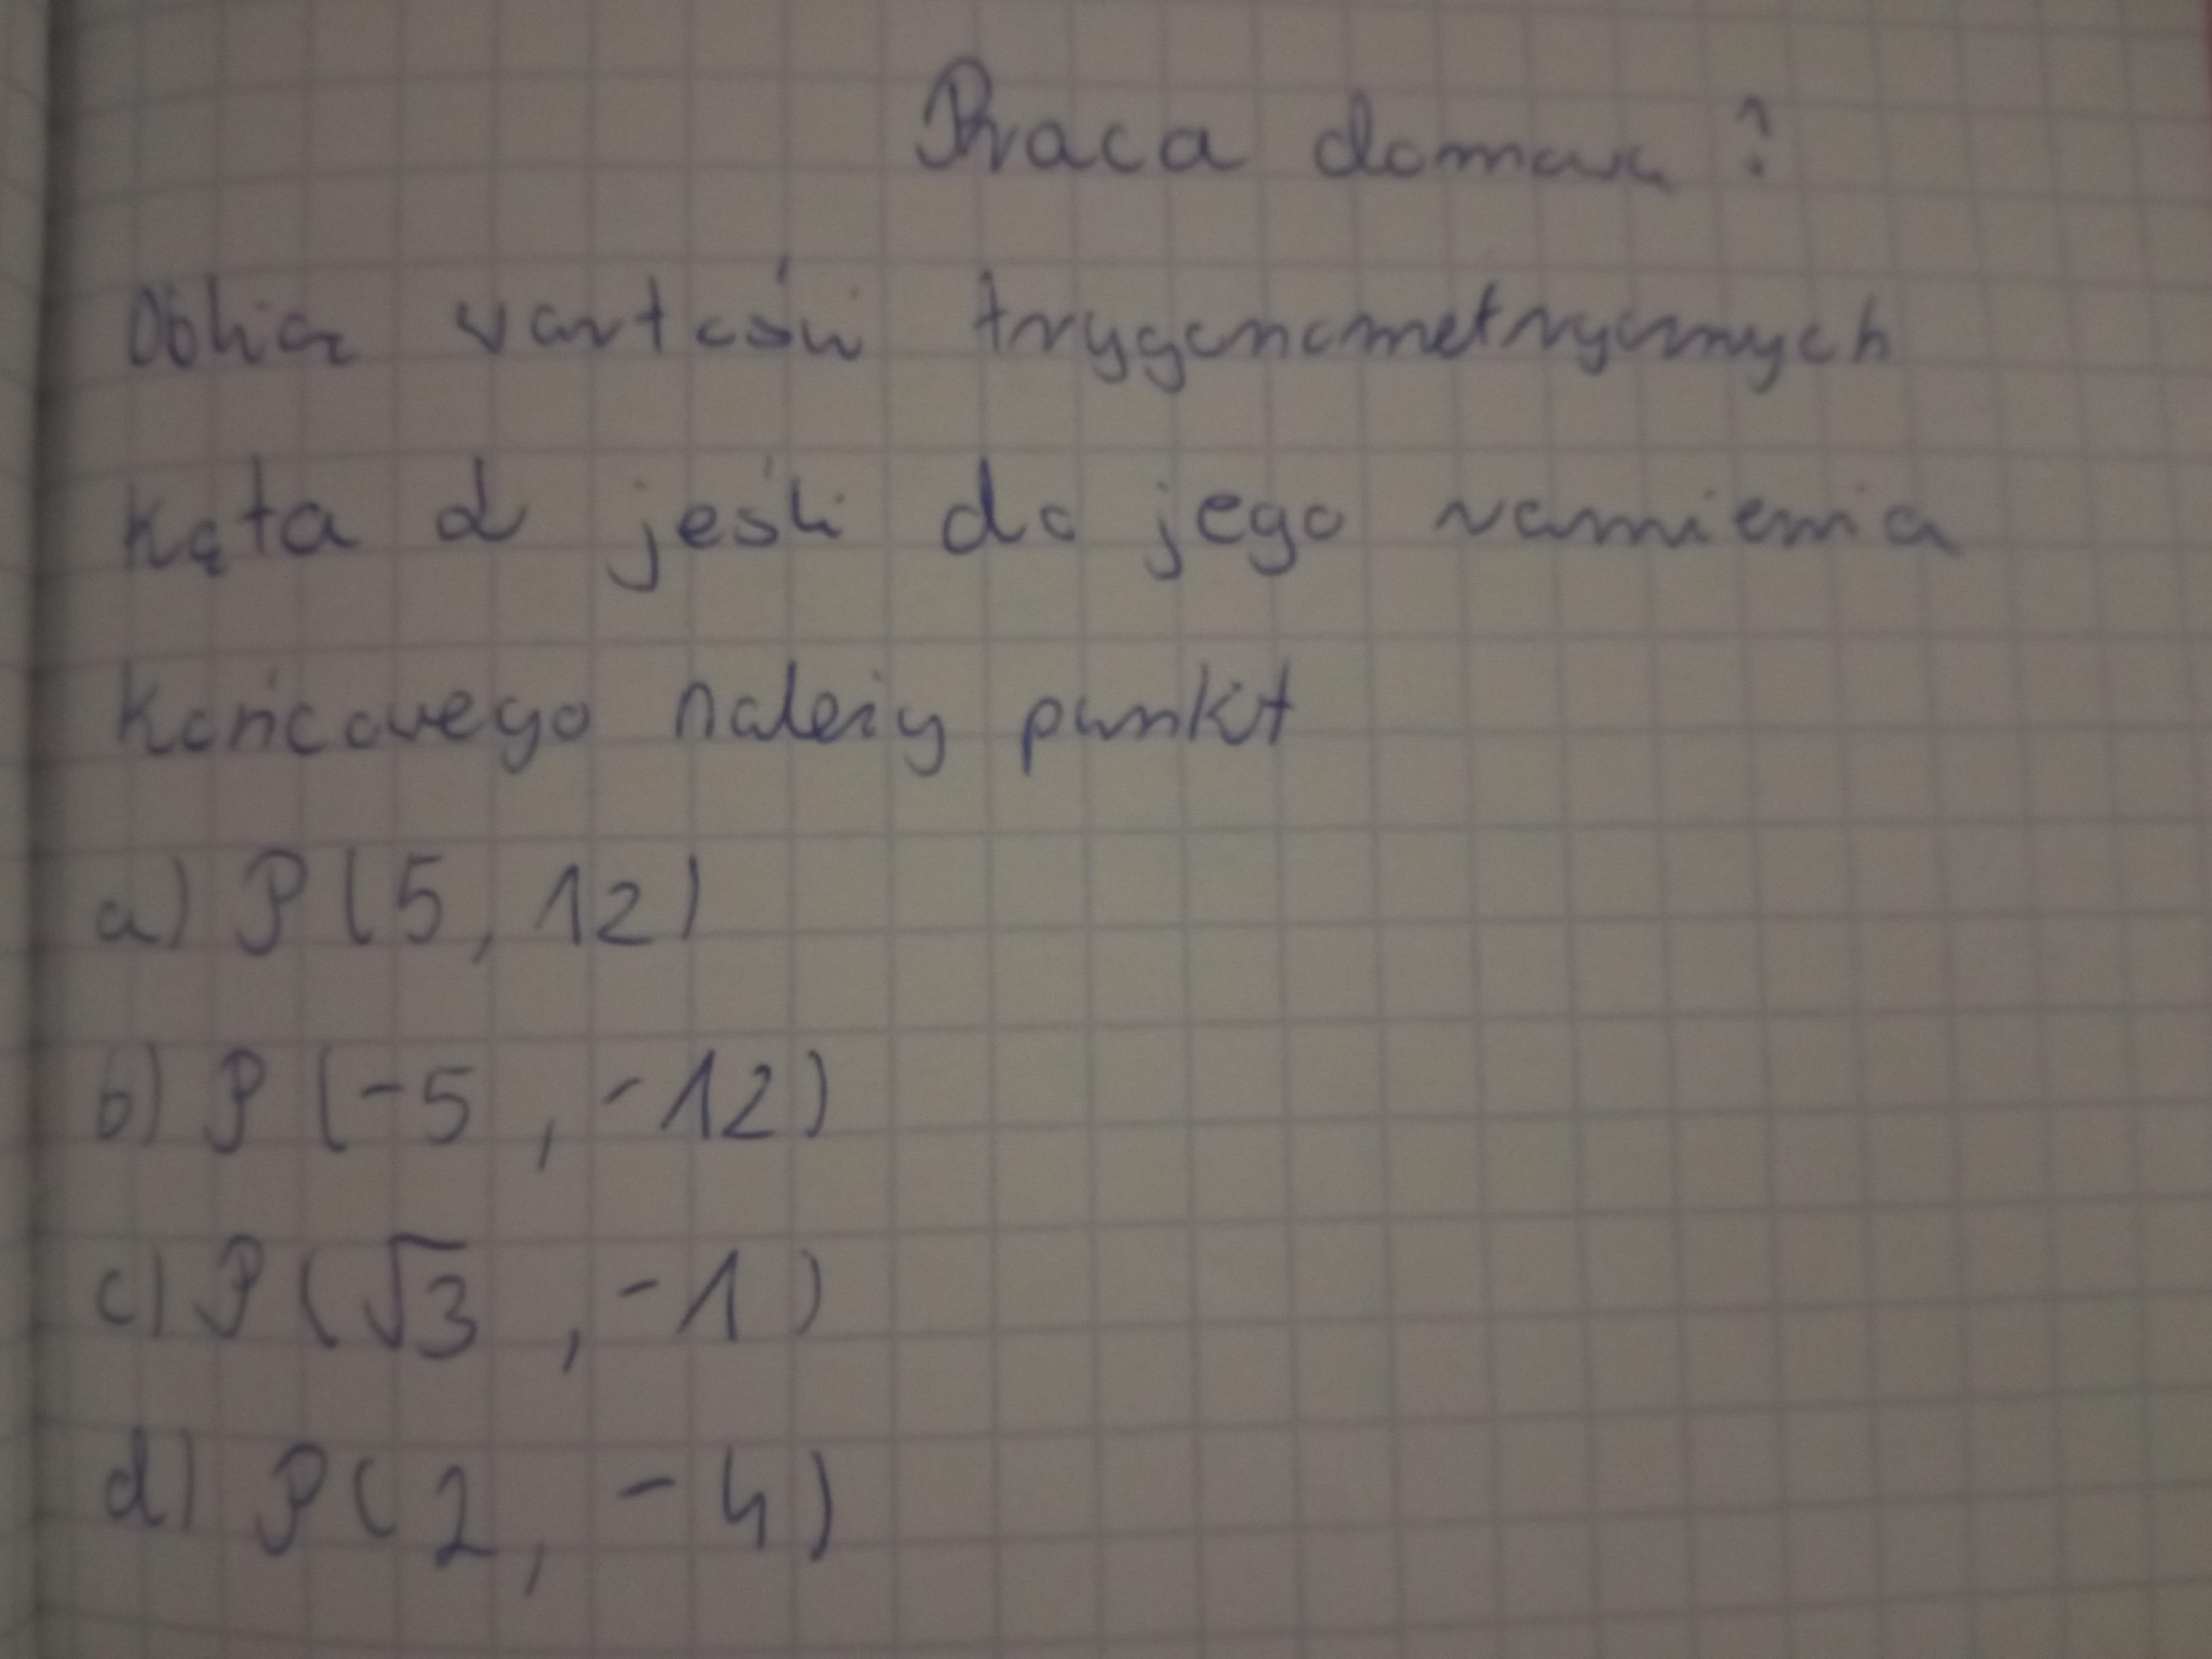 Praca domowa?
Oblicz wartość trygonometrycznych
kąta α jeśli do jego ramienia
końcowego należy punkt
a) P(5, 12)
b) P(-5, -12)
c) P(√3, -1)
d) P(2, -4)